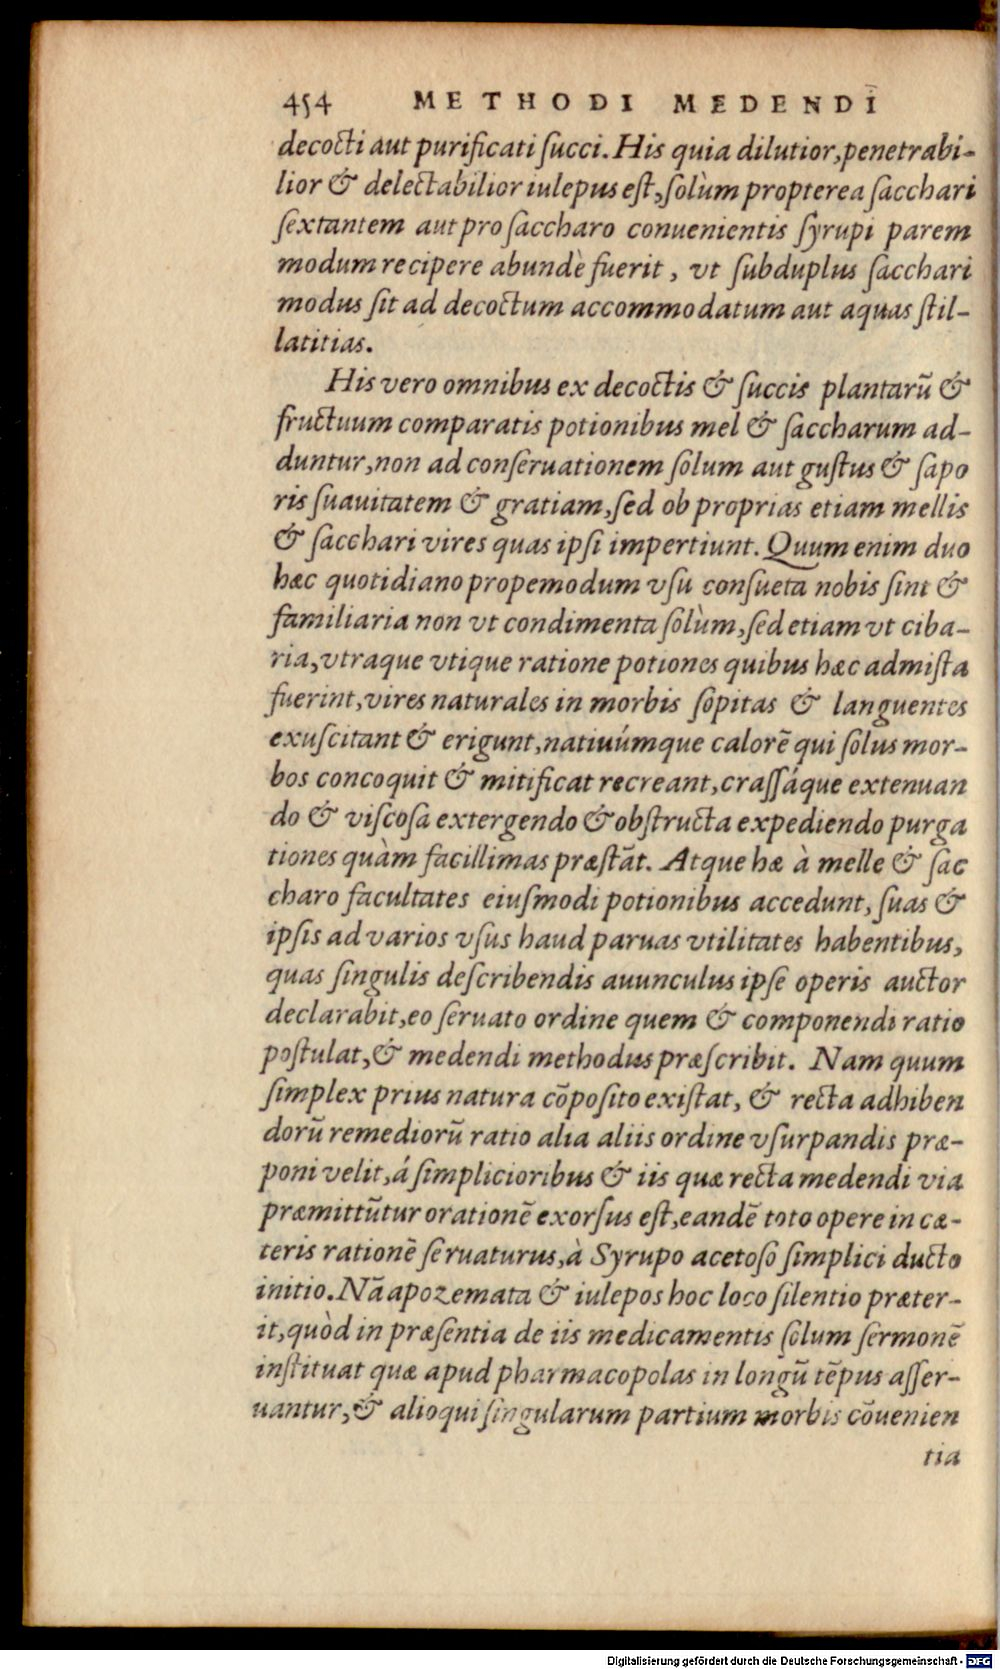 454 METHODI MEDENDI
decocti aut purificati ſucci. His quia dilutior, penetrabi-
lior & delectabilior iulepus eſt, ſolùm propterea ſacchari
ſextantem aut pro ſaccharo conuenientis ſyrupi parem
modum recipere abundè fuerit, vt ſubduplus ſacchari
modus ſit ad decoctum accommodatum aut aquas ſtil-
latitias.
His vero omnibus ex decoctis & ſuccis plantarũ &
fructuum comparatis potionibus mel & ſaccharum ad-
duntur, non ad conſeruationem ſolum aut guſtus & ſapo
ris ſuauitatem & gratiam, ſed ob proprias etiam mellis
& ſacchari vires quas ipſi impertiunt. Quum enim duo
hæc quotidiano propemodum vſu conſueta nobis ſint &
familiaria non vt condimenta ſolùm, ſed etiam vt ciba-
ria, vtraque vtique ratione potiones quibus hæc admiſta
fuerint, vires naturales in morbis ſopitas & languentes
exuſcitant & erigunt, natiuúmque calorẽ qui ſolus mor-
bos concoquit & mitificat recreant, craſſáque extenuan
do & viſcoſa extergendo & obſtructa expediendo purga
tiones quàm facillimas præſtãt. Atque hæ à melle & ſac
charo facultates eiuſmodi potionibus accedunt, ſuas &
ipſis ad varios vſus haud paruas vtilitates habentibus,
quas ſingulis deſcribendis auunculus ipſe operis auctor
declarabit, eo ſeruato ordine quem & componendi ratio
poſtulat, & medendi methodus præſcribit. Nam quum
ſimplex prius natura cõpoſito exiſtat, & recta adhiben
dorũ remediorũ ratio alia aliis ordine vſurpandis præ-
poni velit, á ſimplicioribus & iis quæ recta medendi via
præmittũtur orationẽ exorſus eſt, eandẽ toto opere in cæ-
teris rationẽ ſeruaturus, à Syrupo acetoſo ſimplici ducto
initio. Nã apozemata & iulepos hoc loco ſilentio præter-
it, quòd in præſentia de iis medicamentis ſolum ſermonẽ
inſtituat quæ apud pharmacopolas in longũ tẽpus aſſer-
uantur, & alioqui ſingularum partium morbis cõuenien
tia
Digitalisierung gefördert durch die Deutsche Forschungsgemeinschaft - DFG